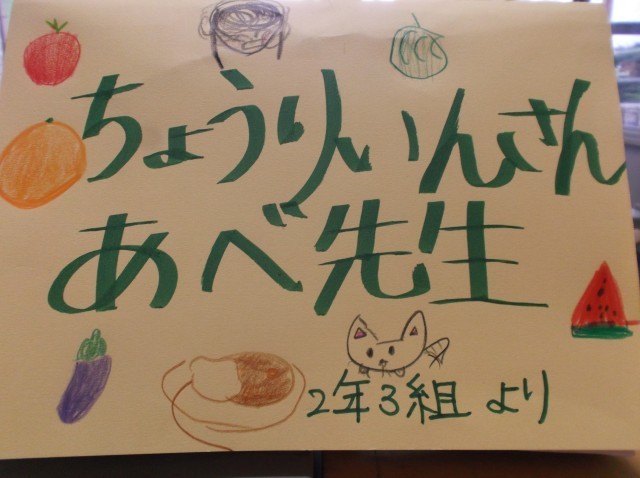 ちょうりいんさん
あべ先生
2年3組 より